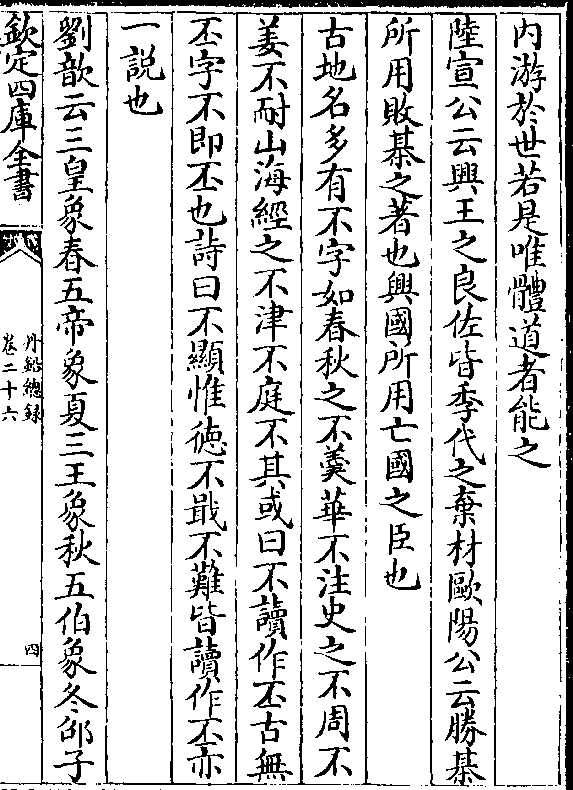 内游於世若是唯體道者能之
陸宣公云興王之良佐皆季代之棄材歐陽公云勝棊
所用敗棊之著也興國所用亡國之臣也
古地名多有不字如春秋之不羮華不注史之不周不
姜不耐山海經之不津不庭不其或曰不讀作丕古無
丕字不即丕也詩曰不顯惟德不戢不難皆讀作丕亦
一説也
劉歆云三皇象春五帝象夏三王象秋五伯象冬邵子
欽定四庫全書
丹鉛總録
卷二十六
四